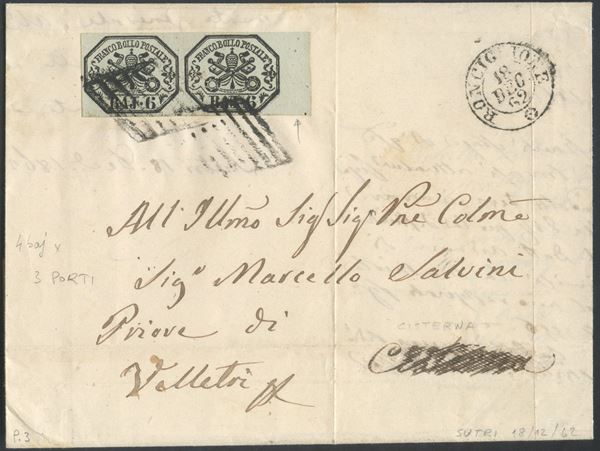 FRANCO BOLLO POSTALE
BAJ. 6
FRANCO BOLLO POSTALE
BAJ. 6
RONCIGLIONE
18
DEC
62
All' Illmo Sig Sig Pne Colmo
Sigr Marcello Salvini
Priore di
Velletri
4 baj x
3 PORTI
CISTERNA
P.3
SUTRI 18/12/62